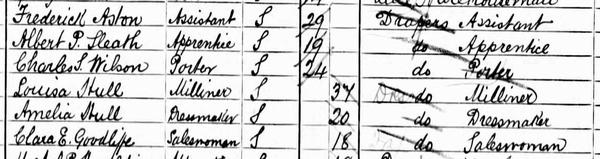 Frederick Aston Assistant S 29 Drapers Assistant
Albert P. Sleath Apprentice S 19 do Apprentice
Charles S. Wilson Porter S 24 do Porter
Louisa Hull Milliner S 37 do Milliner
Amelia Hull Dressmaker S 20 do Dressmaker
Clara E. Goodliffe Saleswoman S 18 do Saleswoman